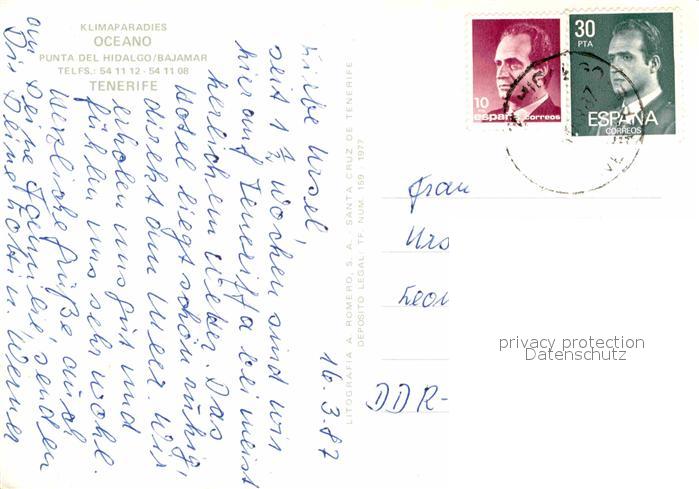 KLIMAPARADIES
OCEANO
PUNTA DEL HIDALGO/BAJAMAR
TELFS.: 54 11 12 - 54 11 08
TENERIFE
16.3.87
Liebe Ursel,
seit 1 1/2 Wochen sind wir
hier auf Teneriffa bei meist
herlichem Wetter. Das
Hotel liegt schön ruhig,
direkt am Meer. Wir
erholen uns gut und
fühlen uns sehr wohl.
Herzliche Grüße auch
an Deine Familie, senden
Dir Deine
u. Werner
LITOGRAFIA A. ROMERO, S. A. - SANTA CRUZ DE TENERIFE
DEPOSITO LEGAL: TF. NUM. 159 - 1977
10
españa correos
30
PTA
ESPAÑA
CORREOS
Frau
Urs
DDR-
privacy protection
Datenschutz